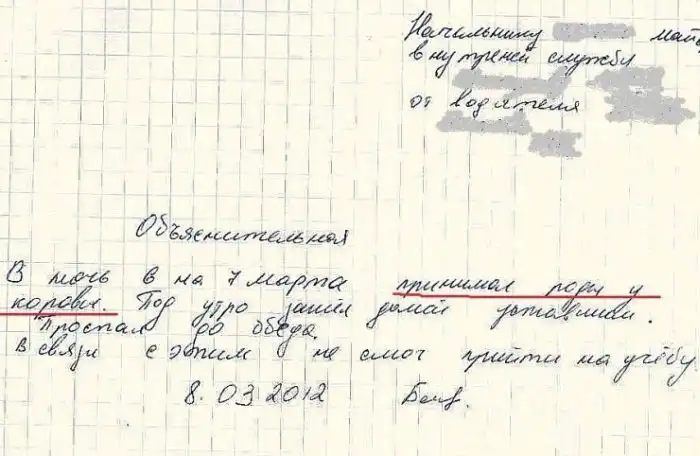 Начальнику май
внутреней службы
от водятеля
Объяснительная
В ночь в на 7 марта принимал роды у
коровы. Под утро зашёл домой уставшим.
Проспал до обеда.
В связи с этим не смог прийти на учёбу
8.03 2012